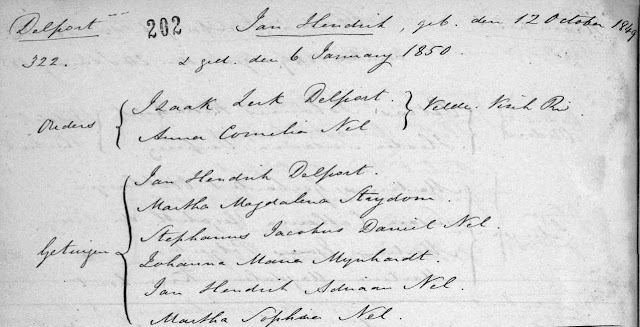 Delport 202 Jan Hendrik, geb. den 12 October 1849
322. & ged. den 6 January 1850.
Ouders Isaak Delport. Velde. Visch Riv
Anna Cornelia Nel
Jan Hendrik Delport.
Martha Magdalena Strydom.
Stephanus Jacobus Daniel Nel.
Getuigen Johanna Maria Mynhardt.
Jan Hendrik Adriaan Nel.
Martha Sophia Nel.